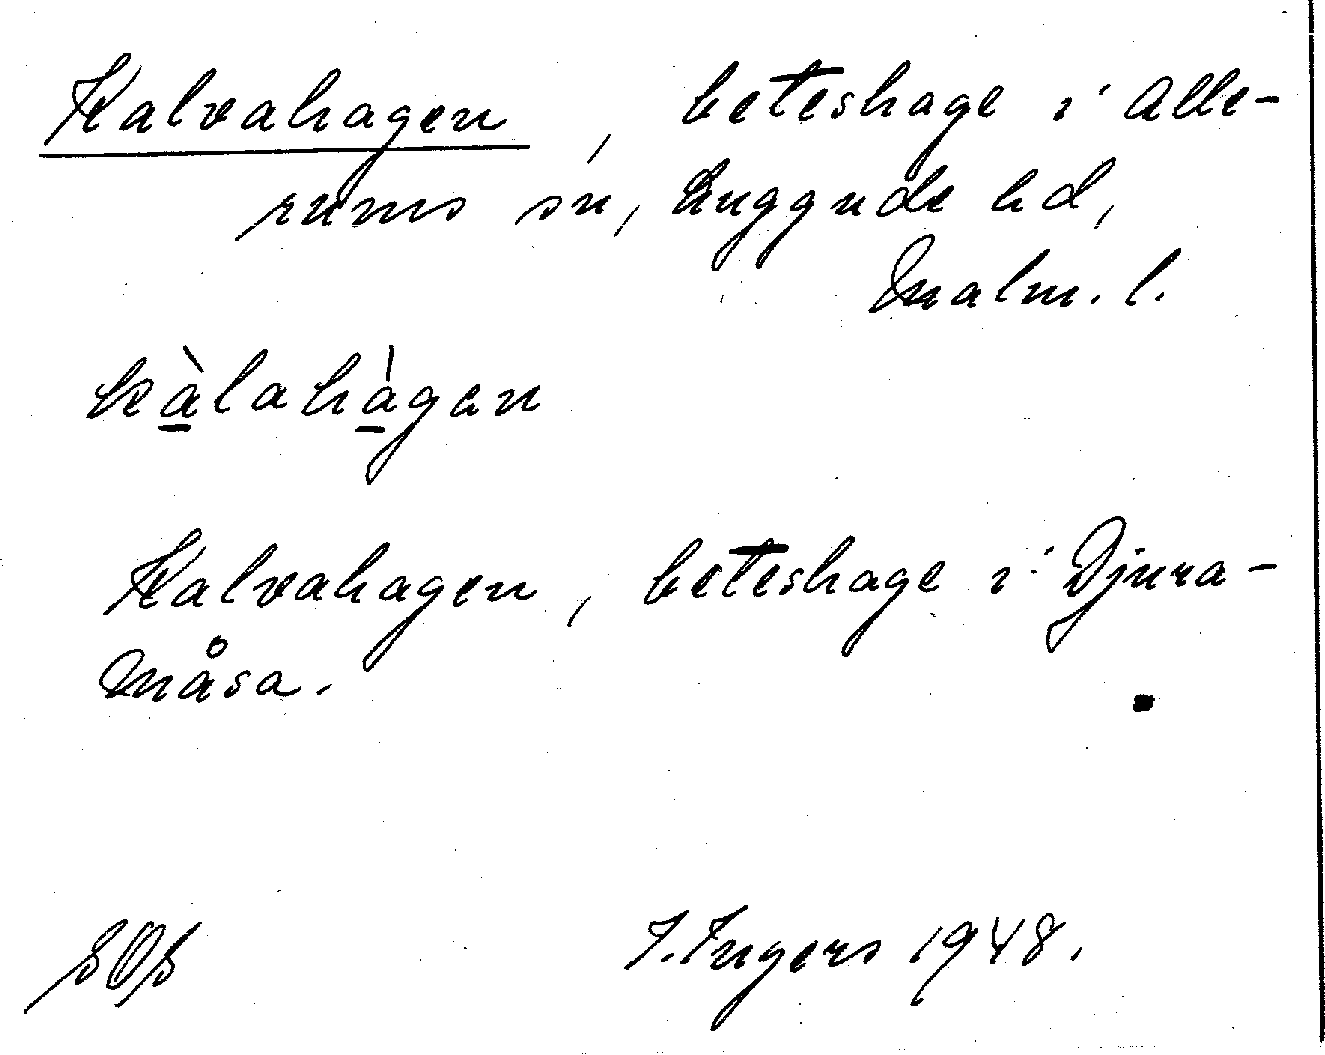 Kalvahagen, beteshage i Alle-
rums sn, Luggude hd,
Malm. l.
kàlahàgan
Kalvahagen, beteshage i Djura-
måsa.
SOS I. Ingers 1948.